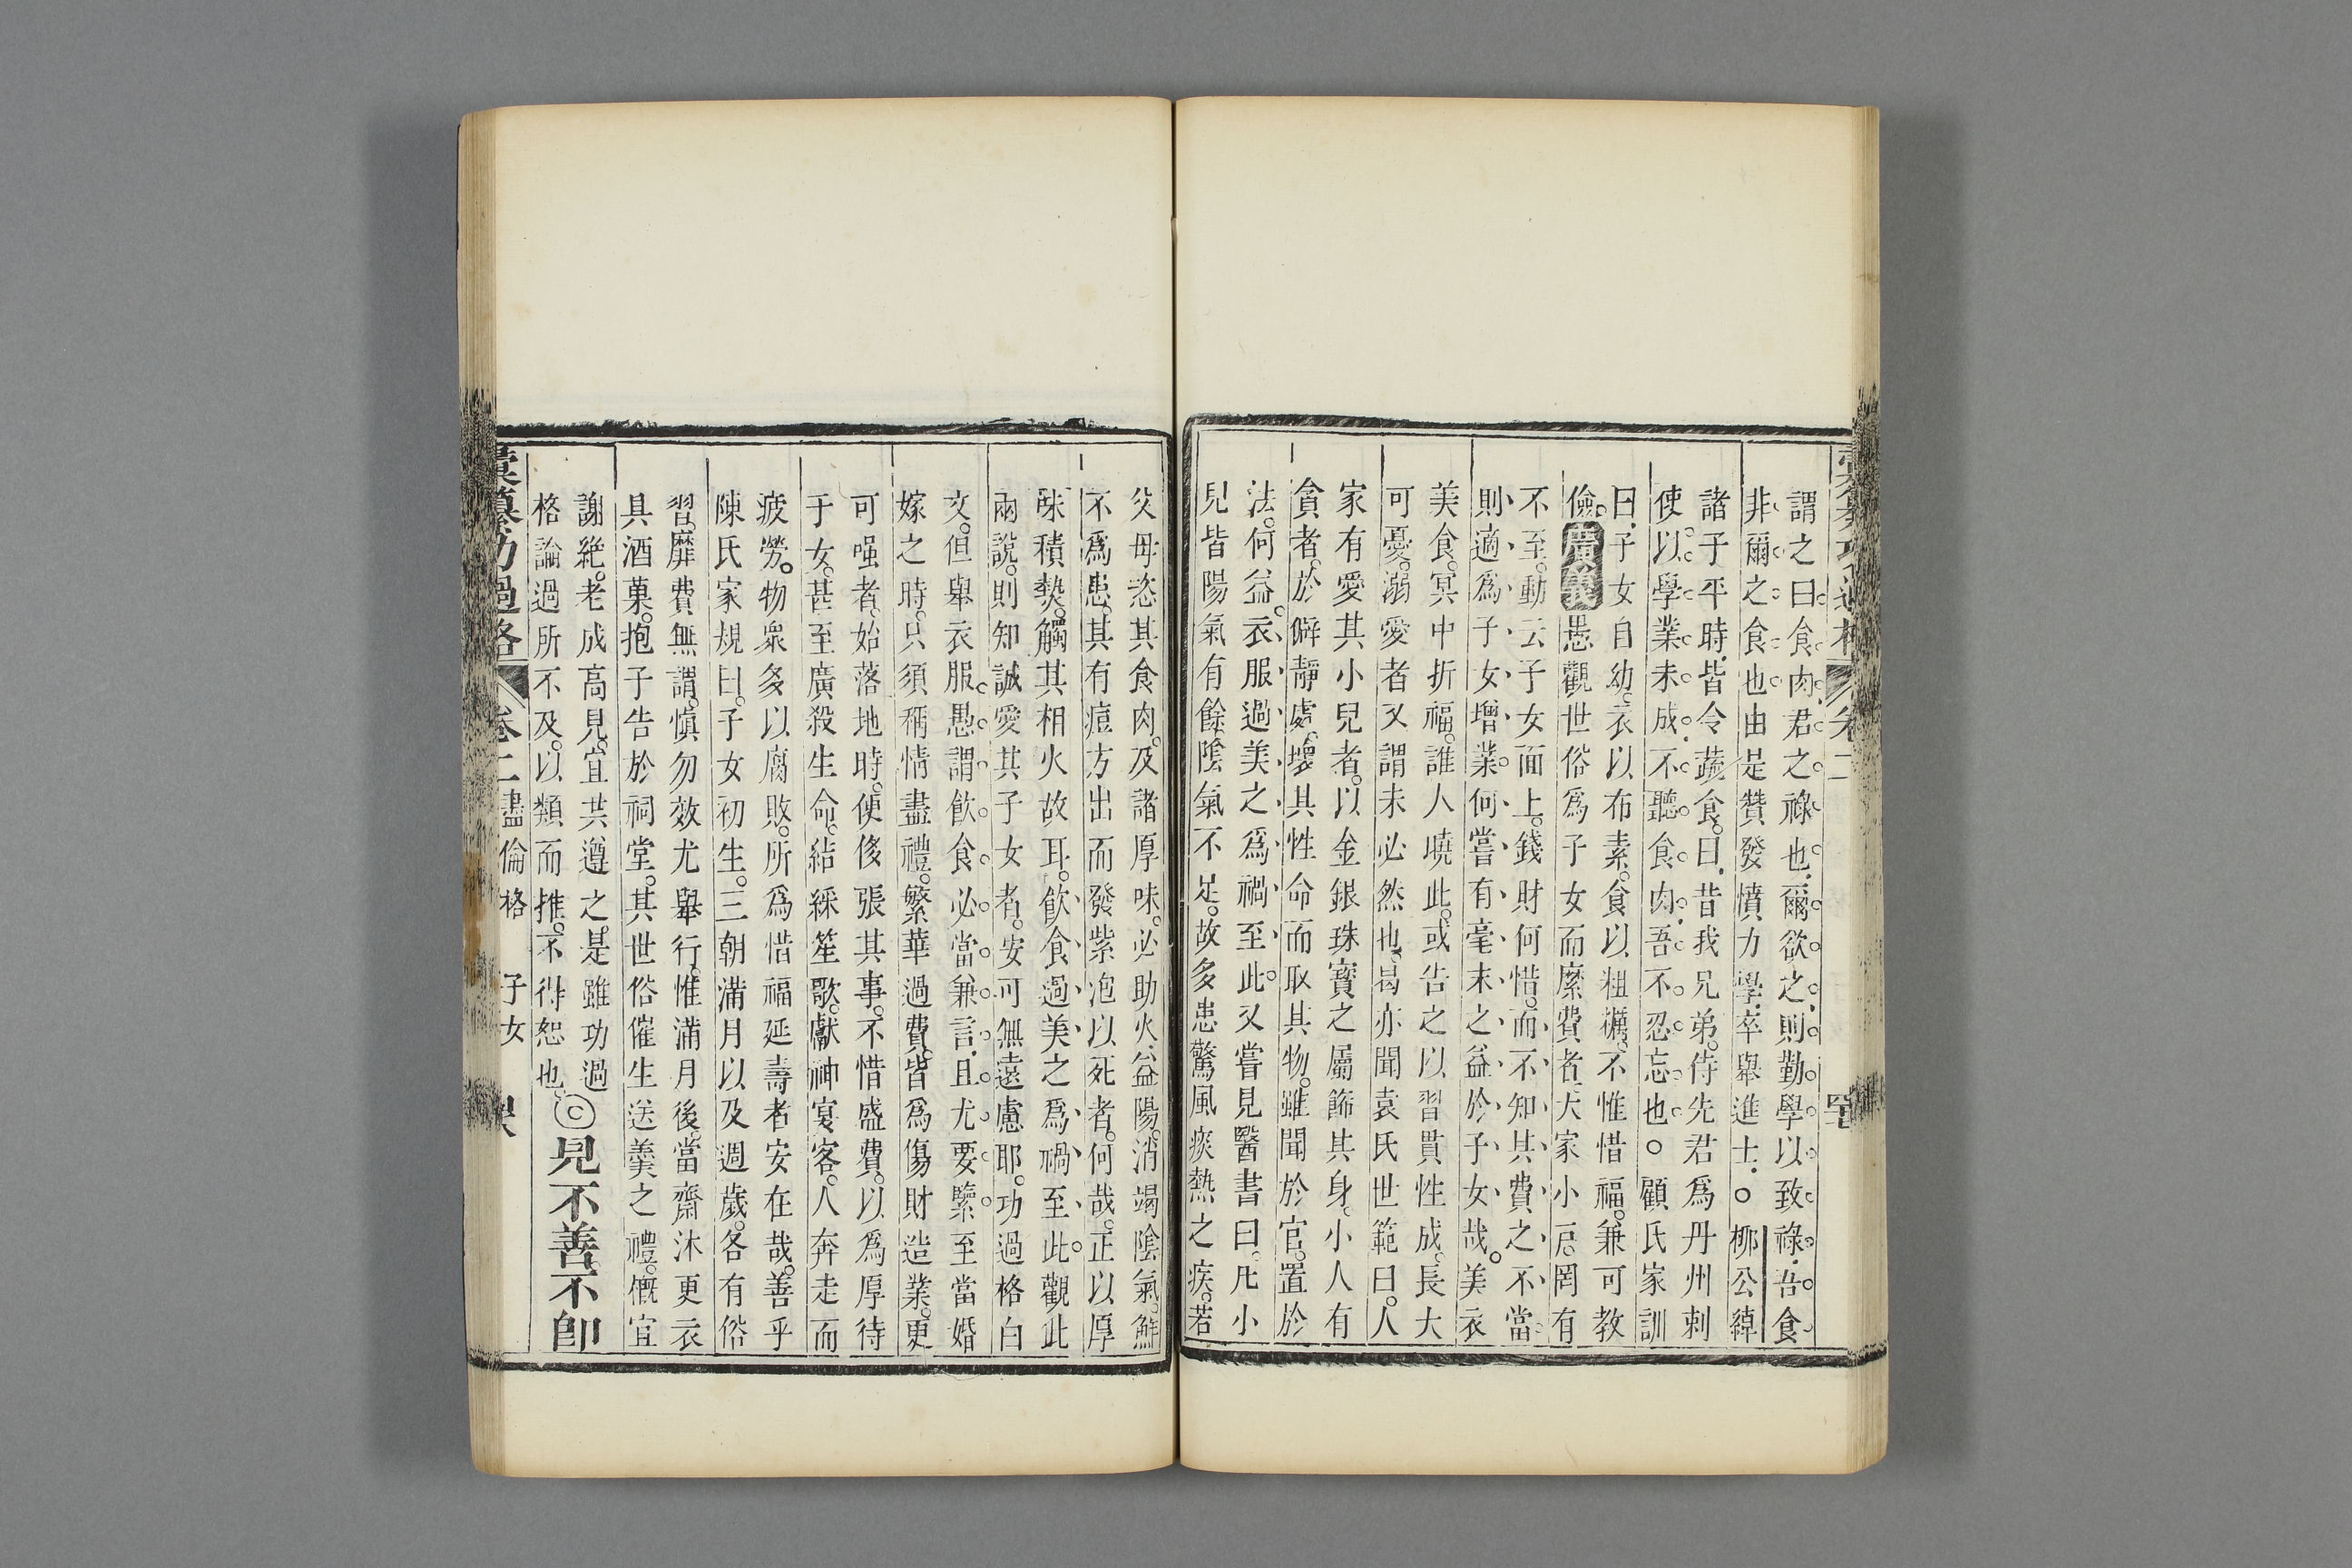 彙纂功過格 卷二 罕七
謂之曰食肉君之祿也爾欲之則勤學以致祿吾食
非爾之食也由是贊發憤力學卒舉進士○柳公綽
諸子平時皆令蔬食曰昔我兄弟侍先君爲丹州刺
使以學業未成不聽食肉吾不忍忘也○顧氏家訓
曰子女自幼衣以布素食以粗糲不惟惜福兼可教
儉廣義愚觀世俗爲子女而糜費者大家小戶罔有
不至動云子女面上錢財何惜而不知其費之不當
則適爲子女增業何嘗有毫末之益於子女哉美衣
美食冥中折福誰人曉此或告之以習貫性成長大
可憂溺愛者又謂未必然也曷亦聞袁氏世範曰人
家有愛其小兒者以金銀珠寶之屬飾其身小人有
貪者於僻靜處壞其性命而取其物雖聞於官置於
法何益衣服過美之爲禍至此又嘗見醫書曰凡小
兒皆陽氣有餘陰氣不足故多患驚風痰熱之疾若
父母恣其食肉及諸厚味必助火益陽消竭陰氣鮮
不爲患其有痘方出而發紫泡以死者何哉正以厚
味積熱觸其相火故耳飲食過美之爲禍至此觀此
兩說則知誠愛其子女者安可無遠慮耶功過格白
文但舉衣服愚謂飲食必當兼言且尤要緊至當婚
嫁之時只須稱情盡禮繁華過費皆爲傷財造業更
可嗤者始落地時便侈張其事不惜盛費以爲厚待
于女甚至廣殺生命結綵笙歌獻神宴客人奔走而
疲勞物衆多以腐敗所爲惜福延壽者安在哉善乎
陳氏家規曰子女初生三朝滿月以及週歲各有俗
習靡費無謂愼勿效尤舉行惟滿月後當齋沐更衣
具酒菓抱子告於祠堂其世俗催生送羹之禮慨宜
謝絶老成高見宜共遵之是雖功過
格論過所不及以類而推不得恕也
見不善不卽
彙纂功過格 卷二 盡倫格 子女